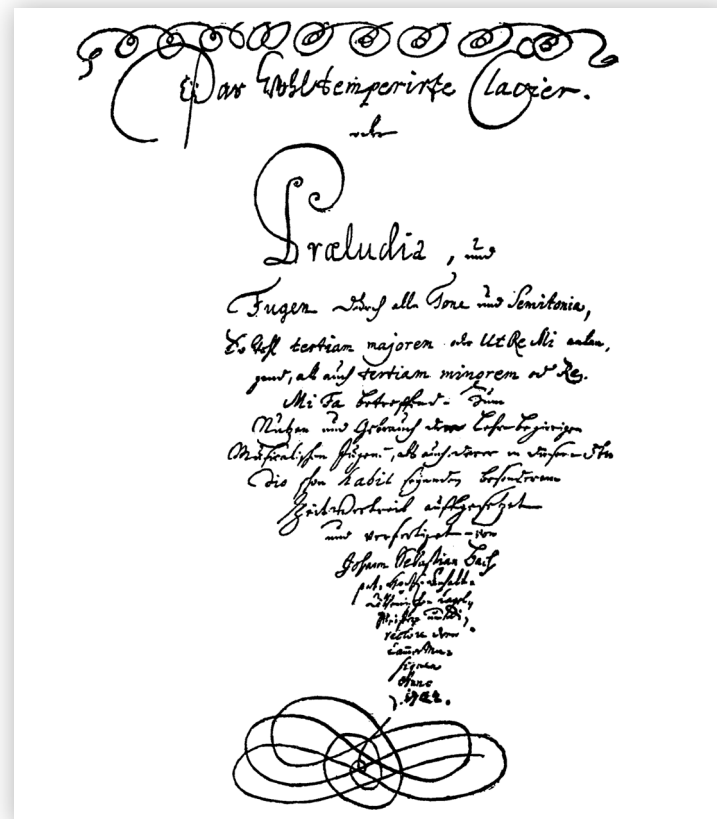 Das Wohltemperirte Clavier.
oder
Præludia, und
Fugen durch alle Tone und Semitonia,
So wohl tertiam majorem oder Ut Re Mi anlan,
gend, als auch tertiam minorem oder Re
Mi Fa betreffend. Zum
Nutzen und Gebrauch der Lehr-begierigen
Musicalischen Jugend, als auch derer in diesem stu
dio schon habil seyenden besonderem
ZeitVertreib auffgesetzet
und verfertiget von
Johann Sebastian Bach
p.t. HochF. Anhalt-
Cöthenischen Capel,
Meistern und Di,
rectore derer
Cam̄er Mu-
siquen
Anno
1722.